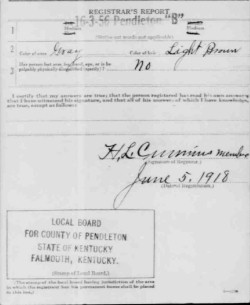 REGISTRAR'S REPORT
16-3-56 Pendleton "B"
1
Color of eyes Gray Color of hair Light Brown
No
I certify that my answers are true; that the person registered has read his own answers;
that I have witnessed his signature, and that all of his answers of which I have knowledge
are true, except as follows:
H. L. Cummins member
(Signature of Registrar.)
June 5, 1918
(Date of Registration.)
LOCAL BOARD
FOR COUNTY OF PENDLETON
STATE OF KENTUCKY
FALMOUTH, KENTUCKY.
(Stamp of Local Board.)
(The stamp of the local board having jurisdiction of the area in
which the registrant has his permanent home shall be placed in
this box.)